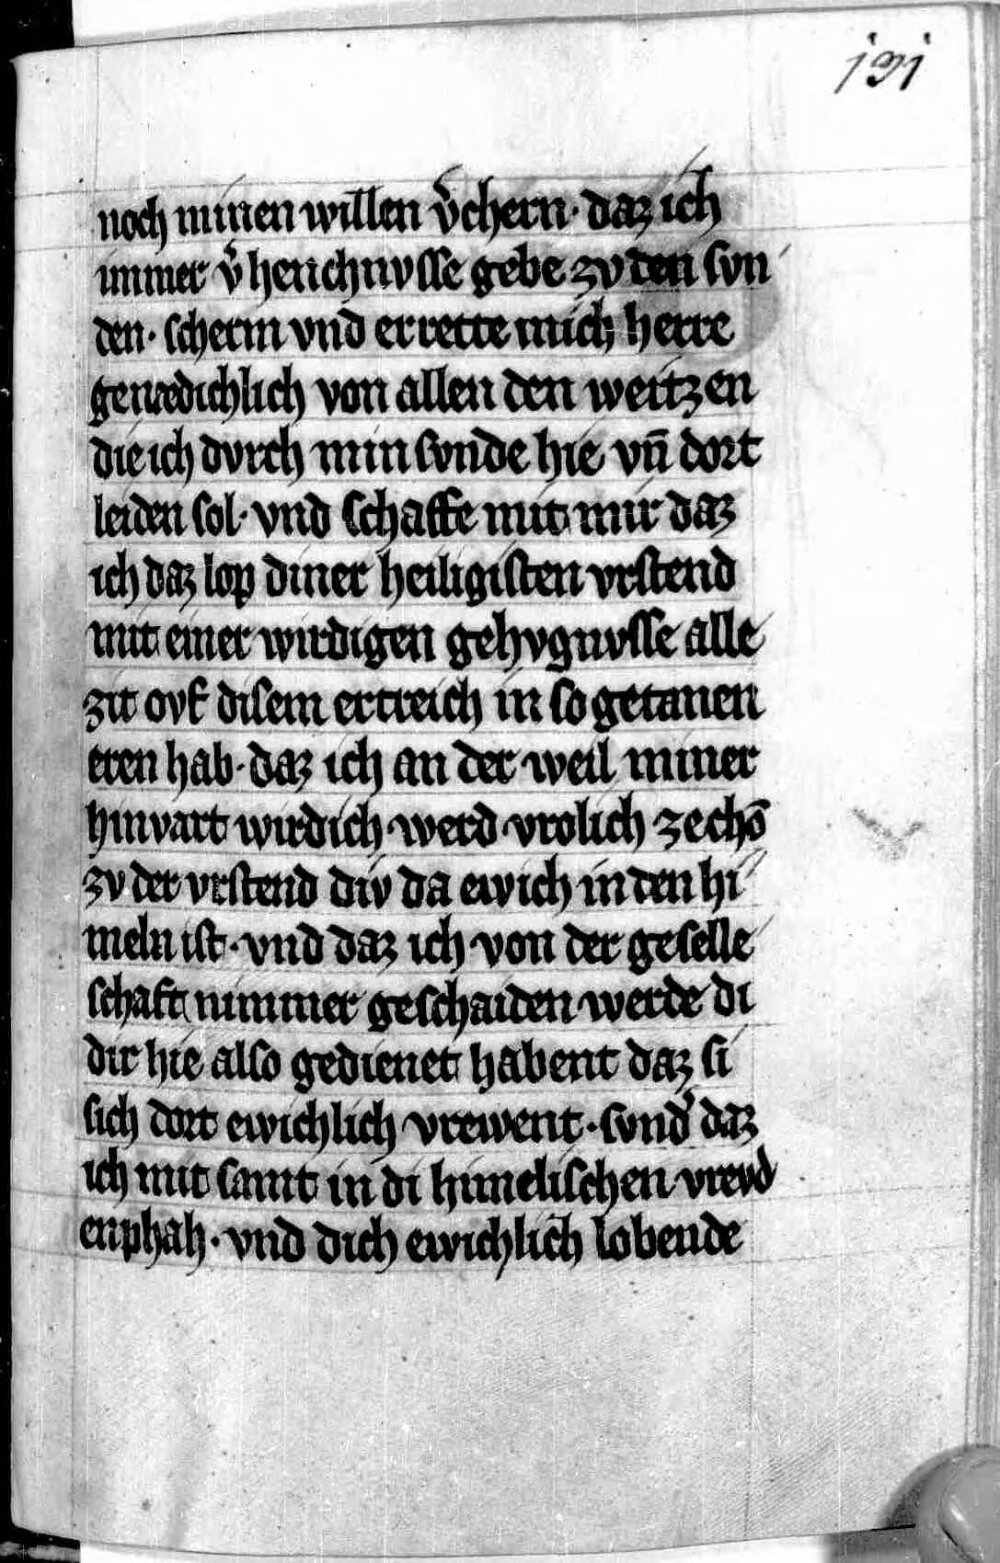 191
noch minen willen v̓chern· daz ich
immer v̓henchnvsse gebe zv den svn
den· scherm vnd errette mich herre
genædichlich von allen den weitzen
die ich dvrch min svnde hie vn̄ dort
leiden sol· vnd schaffe mit mir daz
ich daz lop diner heiligisten vrstend
mit einer wirdigen gehvgnvsse alle
zit ovf disem ertreich in so getanen
eren hab· daz ich an der weil miner
hinvart wirdich werd vrolich ze chō
zv der vrstend div da ewich in den hi
meln ist· vnd daz ich von der geselle
schaft nimmer geschaiden werde di
dir hie also gedienet habent daz si
sich dort ewichlich vrewent· svnd̓ daz
ich mit samt in di himelischen vrevd
enphah· vnd dich ewichlich lobende